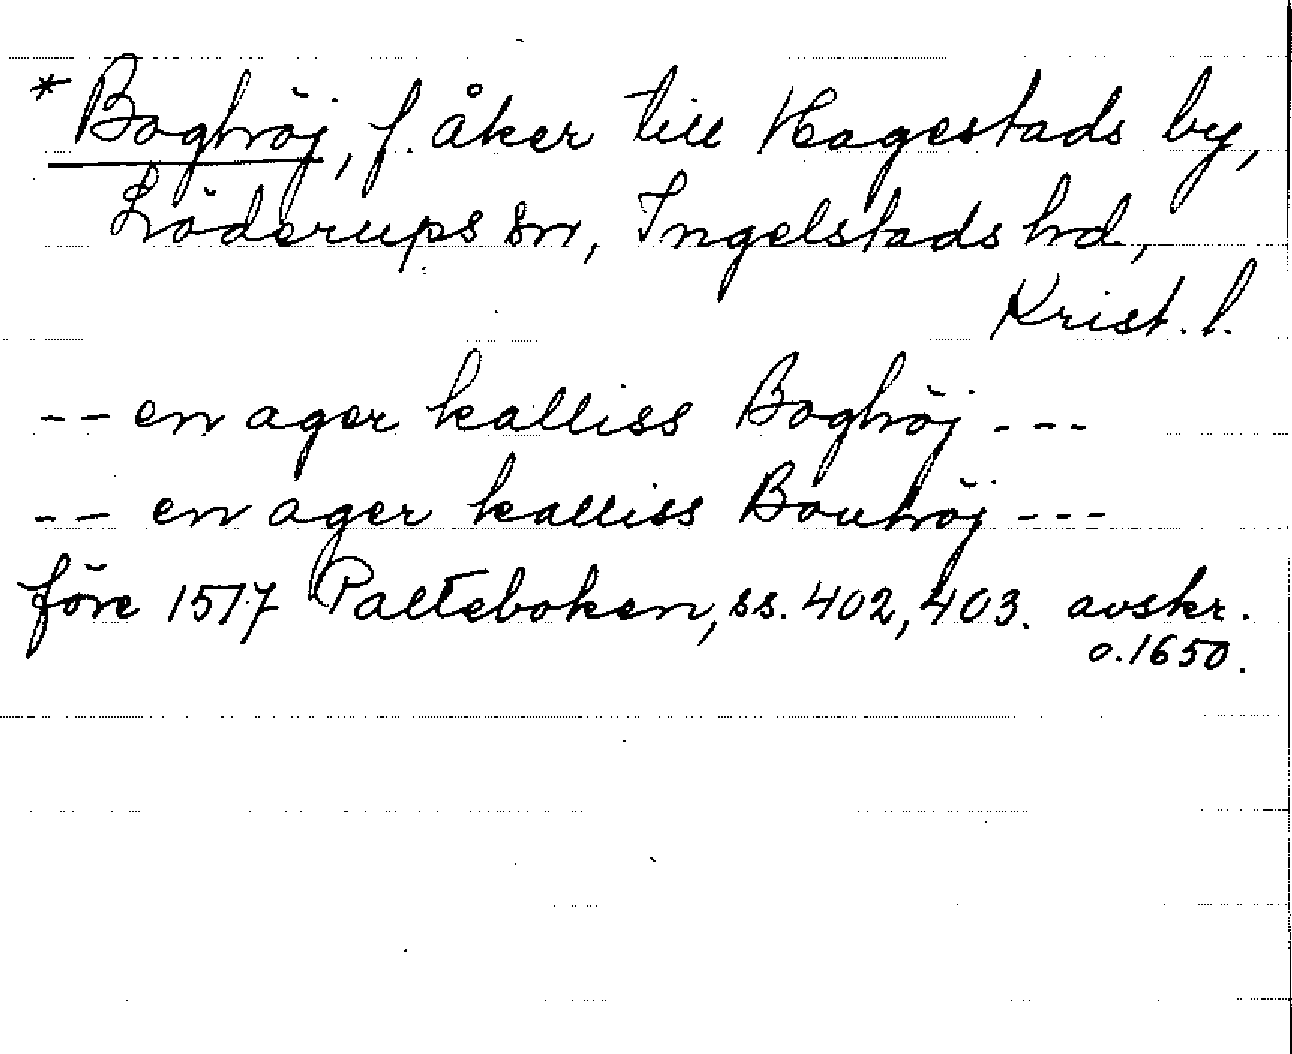 * Boghöj, f. åker till Hagestads by,
Löderups sn, Ingelstads hd,
Krist. l.
-- en ager kalliss Boghöj ---
-- en ager kalliss Bouhöj ---
före 1517 Palteboken, ss. 402, 403. avskr.
o. 1650.